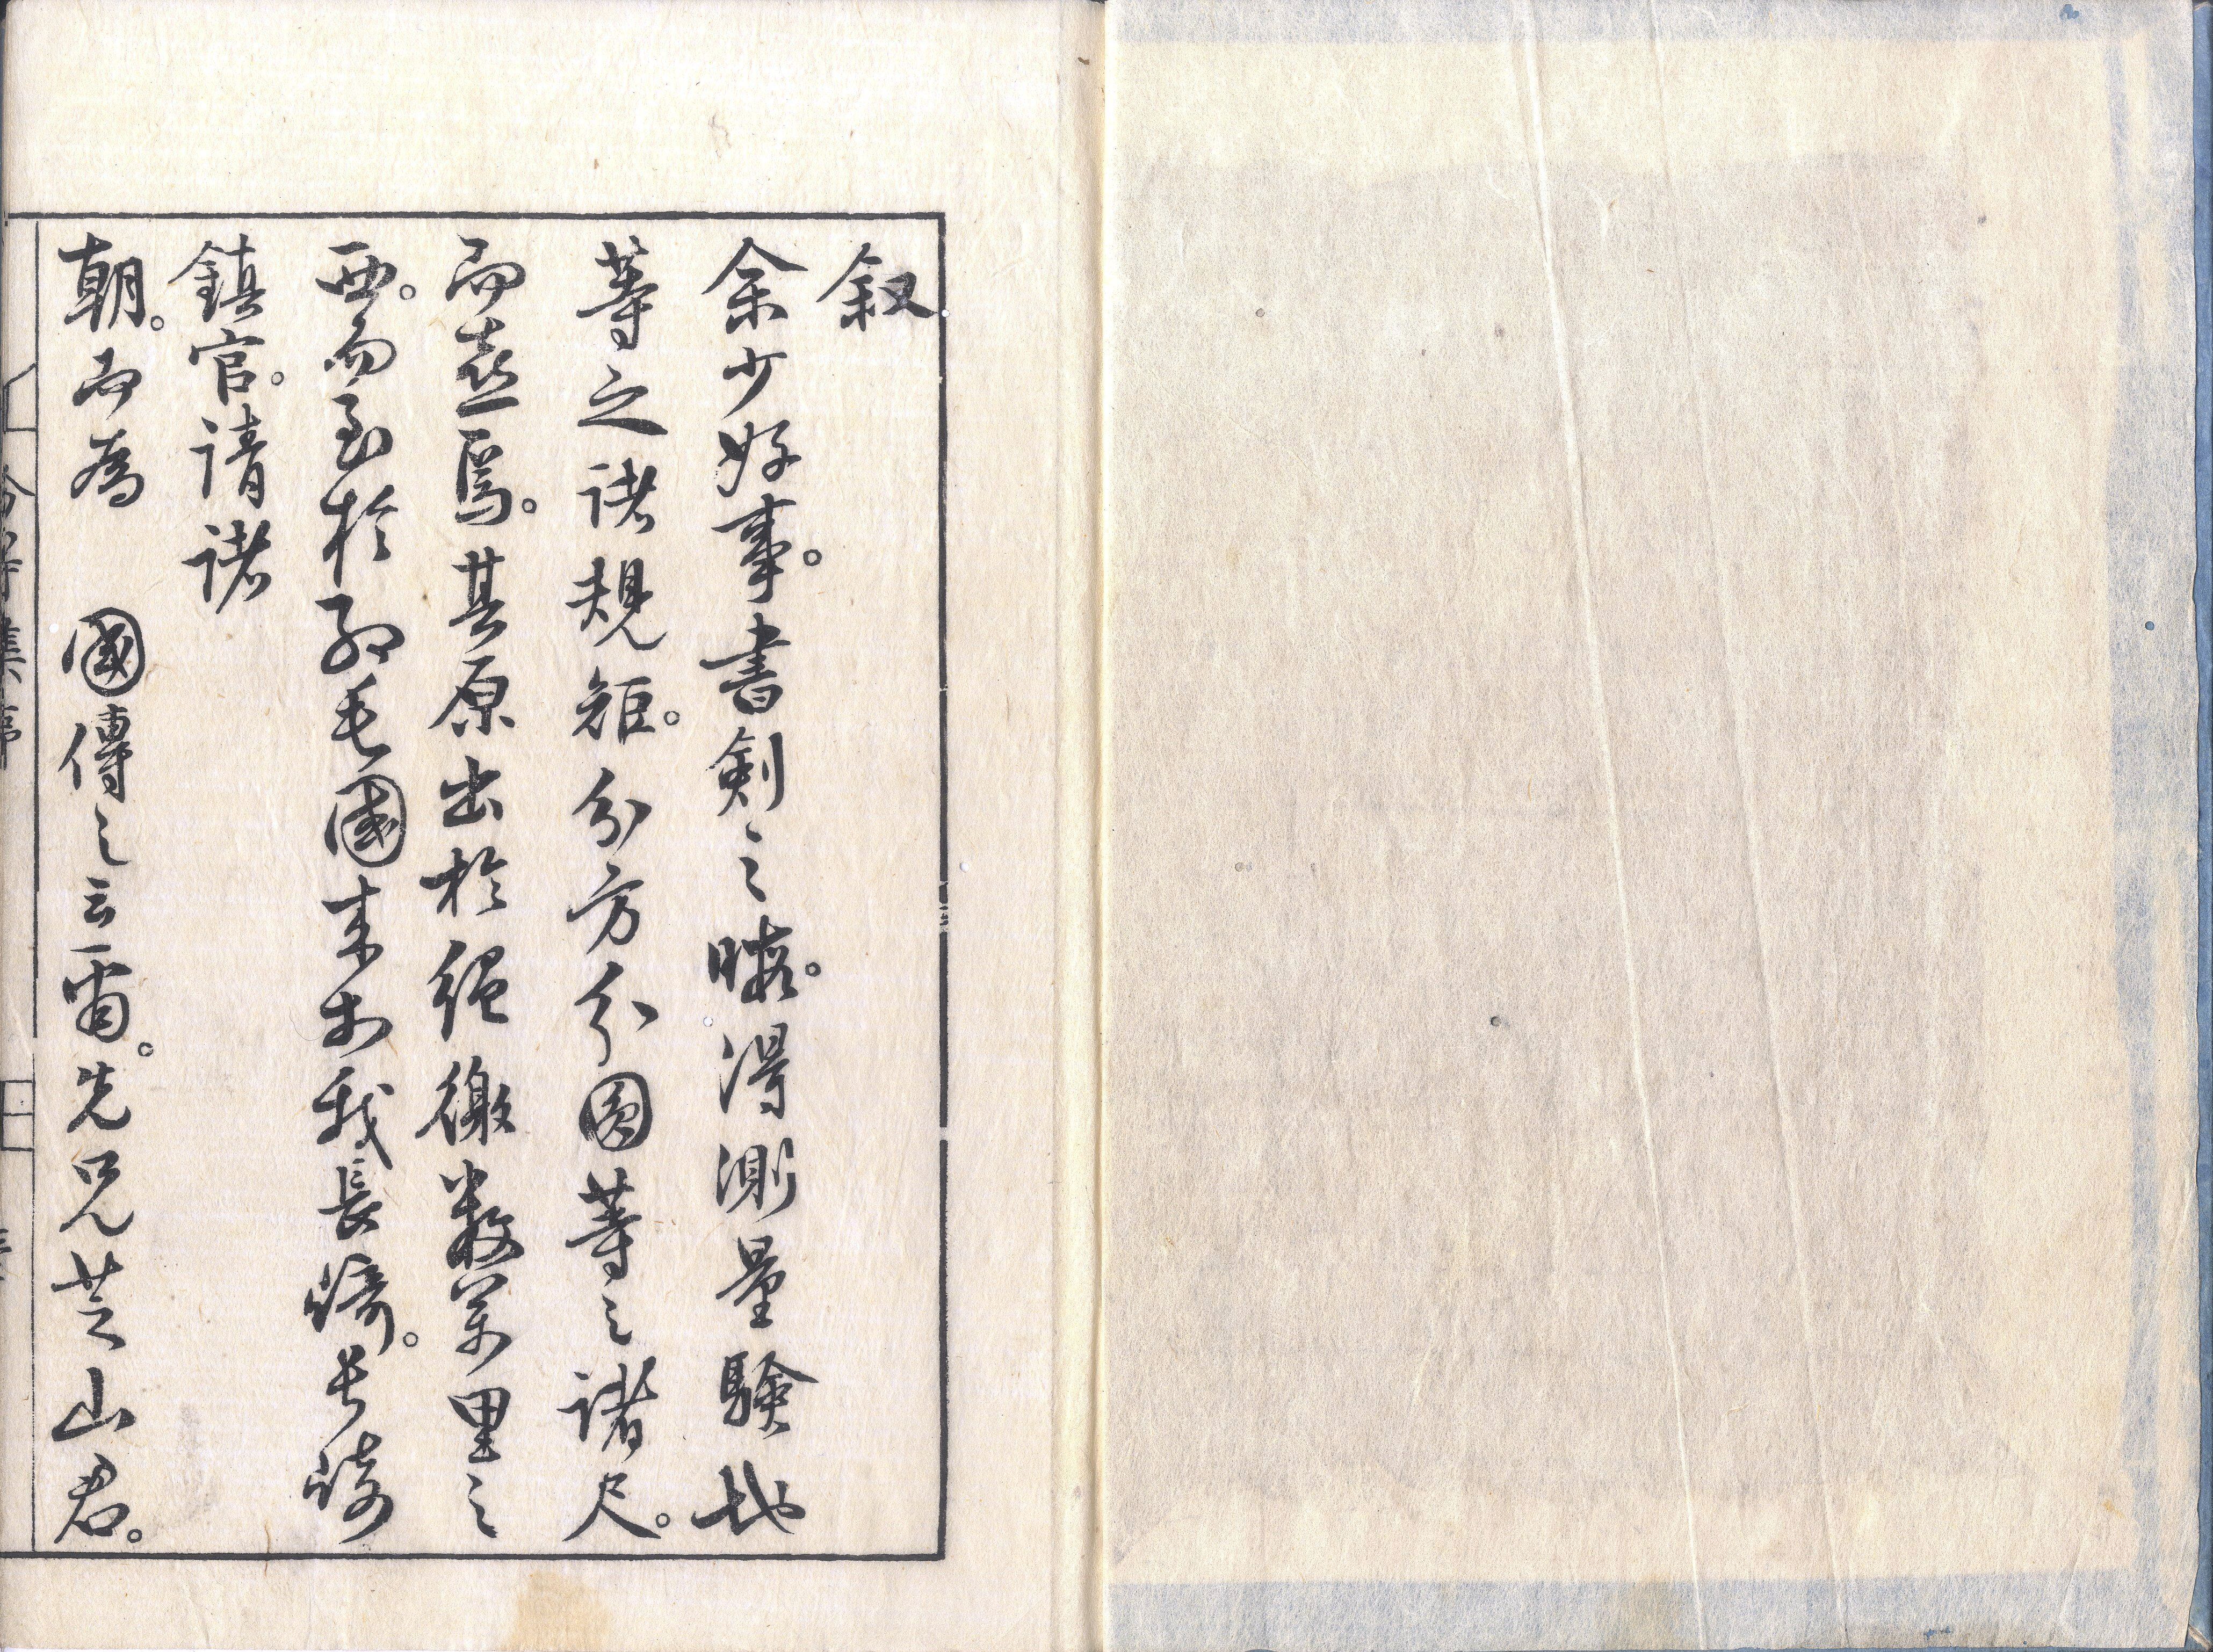 叙
余少好事。書剣之暇。得測量験地
等之諸規矩。分方分圓等之諸尺。
而喜焉。其原出於絶徼数萬里之
西。而至於紅毛國来于我長崎。長崎
鎮官。請諸
朝。而為 國傳之云爾。先兄芝山君。